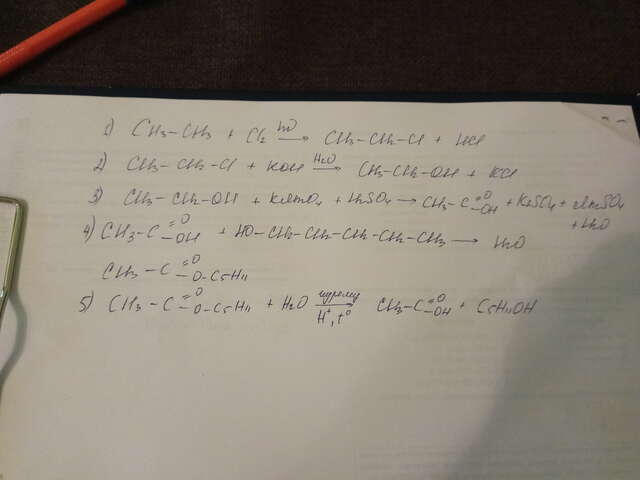 1) CH3-CH3 + Cl2 hν → CH3-CH2-Cl + HCl
2) CH3-CH2-Cl + KOH H2O → CH3-CH2-OH + KCl
3) CH3-CH2-OH + KMnO4 + H2SO4 → CH3-C=O-OH + K2SO4 + MnSO4
+ H2O
4) CH3-C=O-OH + HO-CH2-CH2-CH2-CH2-CH3 → H2O
CH3-C=O-O-C5H11
5) CH3-C=O-O-C5H11 + H2O H+, t° → CH3-C=O-OH + C5H11OH